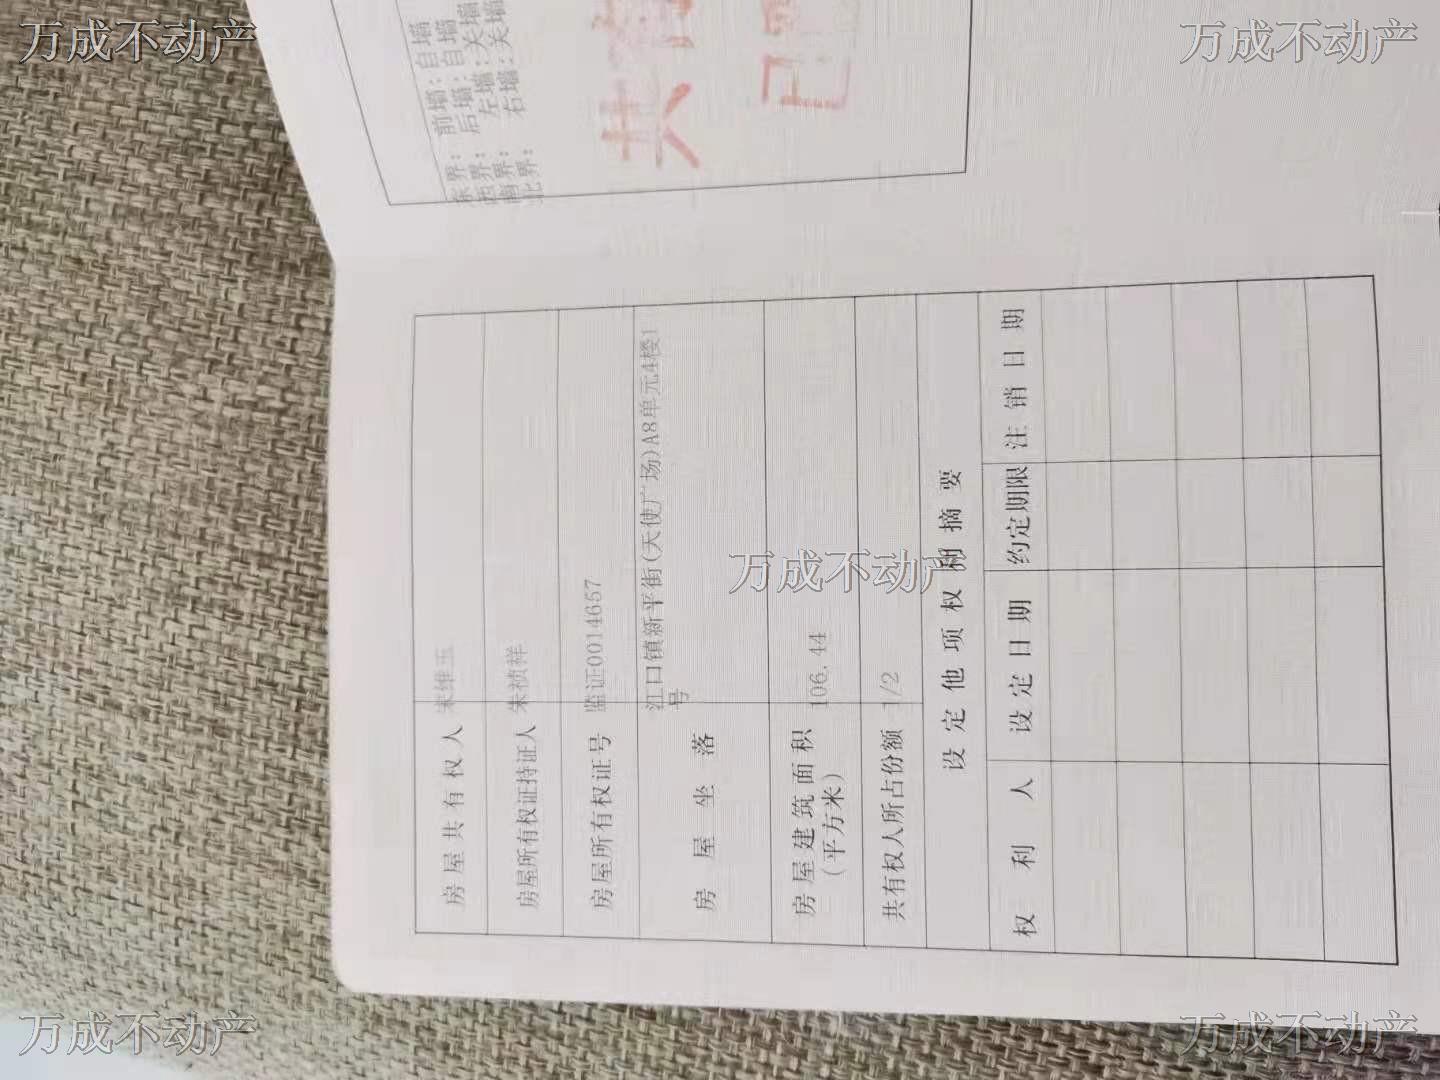 万成不动产
万成不动产
东界：前墙：自墙
西界：后墙：自墙
南界：左墙：关墙
北界：右墙：关墙
共
已
房屋共有权人 宋维玉
房屋所有权证持证人 朱祯祥
房屋所有权证号 监证0014657
房屋坐落 江口镇新平街(天使广场)A8单元4楼1
号
房屋建筑面积 106.44
(平方米)
共有权人所占份额 1/2
设定他项权利摘要
权利人 设定日期 约定期限 注销日期
万成不动产
万成不动产
万成不动产